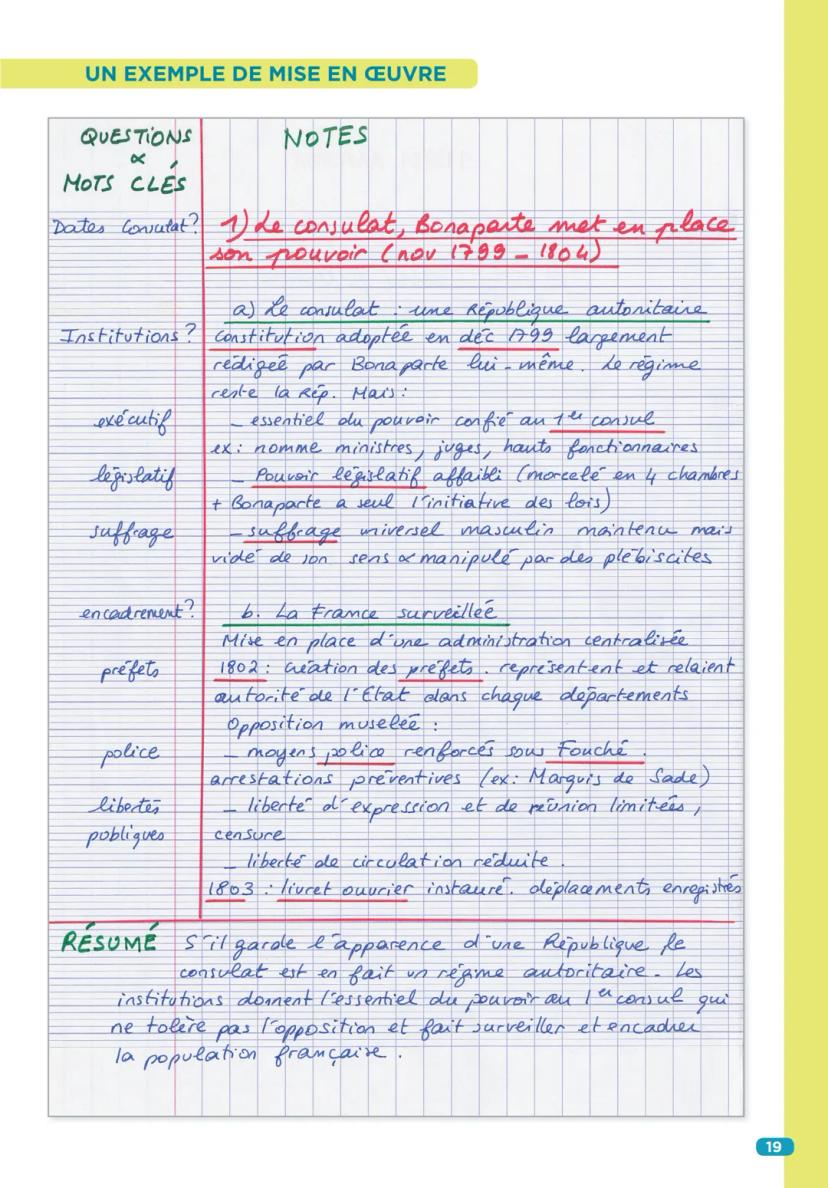 UN EXEMPLE DE MISE EN ŒUVRE
QUESTIONS
&
MOTS CLÉS
NOTES
Dates Consulat?
1) Le consulat, Bonaparte met en place
son pouvoir (nov 1799 - 1804)
a) Le consulat : une République autoritaire
Institutions?
Constitution adoptée en déc 1799 largement
rédigeé par Bonaparte lui-même. Le régime
reste la Rép. Mais :
exécutif
- essentiel du pouvoir confié au 1er consul
ex : nomme ministres, juges, hauts fonctionnaires
législatif
- Pouvoir législatif affaibli (morcelé en 4 chambres
+ Bonaparte a seul l'initiative des lois)
suffrage
- suffrage universel masculin maintenu mais
vidé de son sens & manipulé par des plébiscites
encadrement?
b. La France surveillée
Mise en place d'une administration centralisée
préfets
1802 : création des préfets. représentent et relaient
autorité de l'État dans chaque départements
Opposition muselée :
police
- moyens police renforcés sous Fouché.
arrestations préventives (ex : Marquis de Sade)
libertés
publiques
- liberté d'expression et de réunion limitées,
censure
- liberté de circulation réduite.
1803 : livret ouvrier instauré. déplacements enregistrés
RÉSUMÉ
S'il garde l'apparence d'une République le
consulat est en fait un régime autoritaire. Les
institutions donnent l'essentiel du pouvoir au 1er consul qui
ne tolère pas l'opposition et fait surveiller et encadrer
la population française.
19